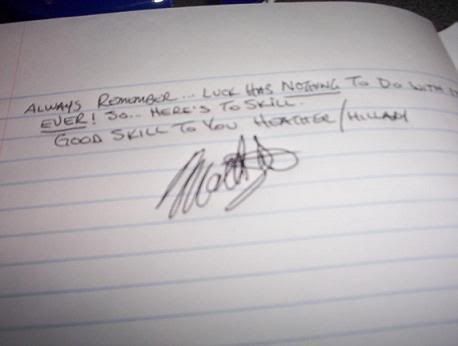 ALWAYS REMEMBER... LUCK HAS NOTHING TO DO WITH IT
EVER! SO... HERE'S TO SKILL.
GOOD SKILL TO YOU HEATHER/HILLARY